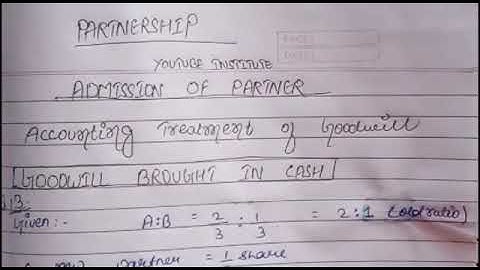 PARTNERSHIP
YOUTUBE INSTITUTE
ADMISSION OF PARTNER
Accounting Treatment of Goodwill
GOODWILL BROUGHT IN CASH
Given :- A:B = 2/3 : 1/3 = 2:1 (old ratio)
partner = 1 share